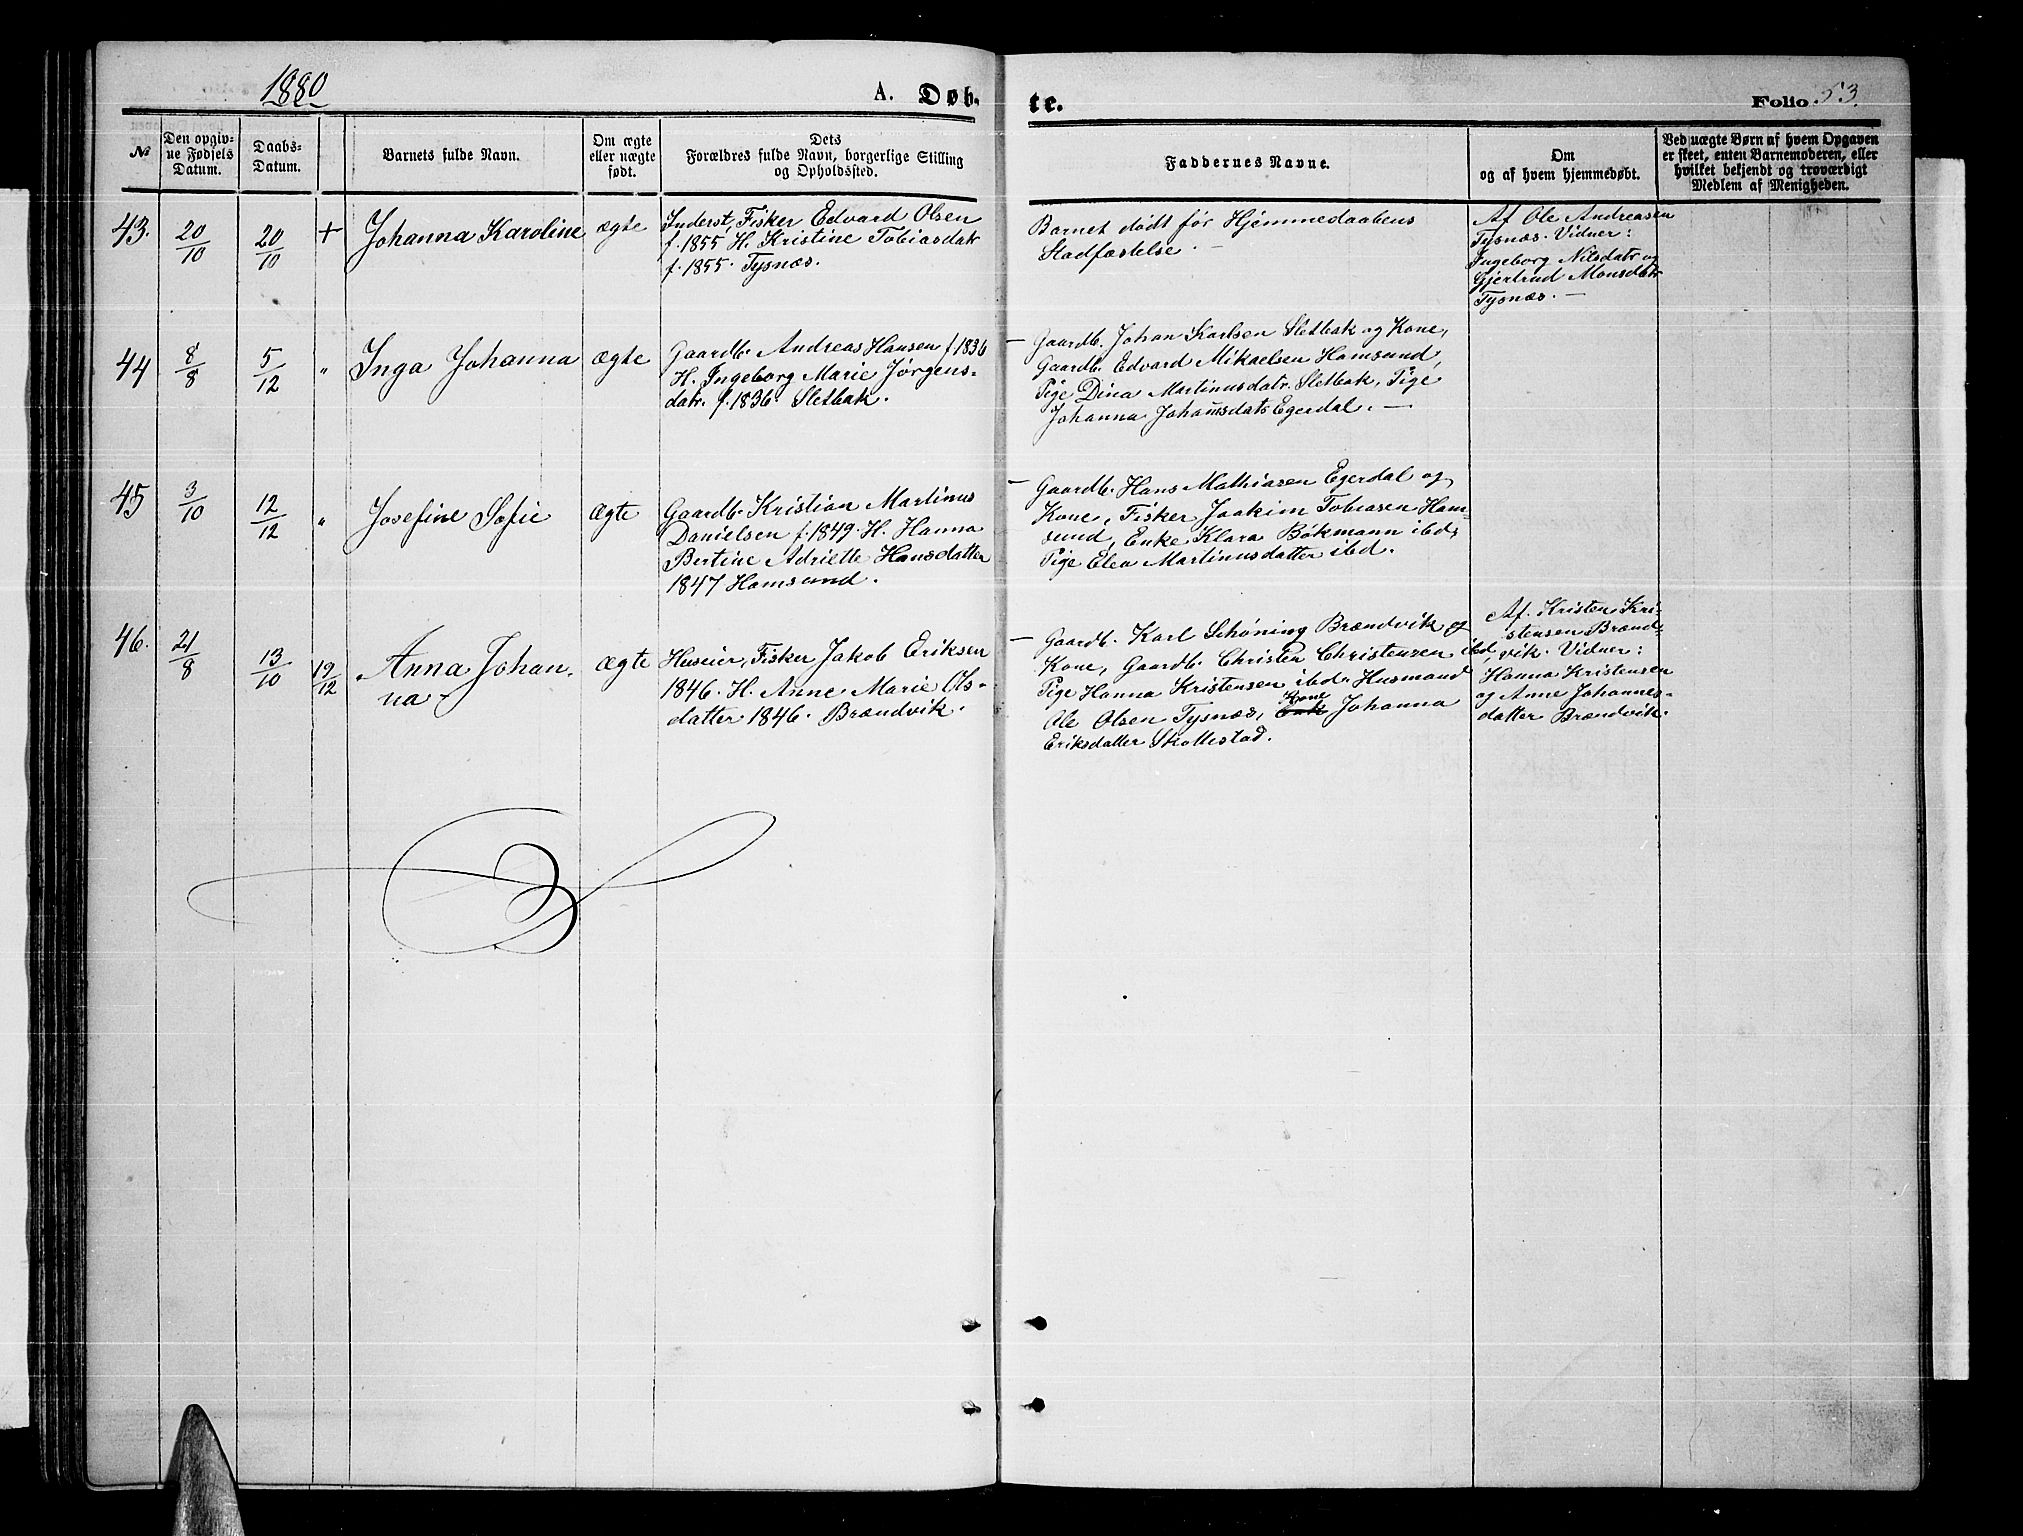 1880
A. Døb-
te.
Folio 53.
№
Den opgiv-
ne Fødsels
Datum.
Daabs-
Datum.
Barnets fulde Navn.
Om ægte
eller uægte
født.
Dets
Forældres fulde Navn, borgerlige Stilling
og Opholdssted.
Faddernes Navne.
Om
og af hvem hjemmedøbt.
Ved uægte Børn af hvem Opgaven
er skeet, enten Barnemoderen, eller
hvilket bekjendt og troværdigt
Medlem af Menigheden.
43.
20/10
20/10
+
Johanna Karoline
ægte
Inderst, Fisker Edvard Olsen
f. 1855 H. Kristine Tobiasdatr
f. 1855. Tysnæs.
Barnet dødt før Hjemmedaabens
Stadfæstelse. —
Af Ole Andreasen
Tysnæs. Vidner:
Ingeborg Nilsdatr og
Gjertrud Monsdatr
Tysnæs. —
44
8/8
5/12
"
Inga Johanna
ægte
Gaardb. Andreas Hansen f. 1836
H. Ingeborg Marie Jørgens-
datr. f. 1836. Sletbak.
— Gaardb. Johan Karlsen Sletbak og Kone,
Gaardb. Edvard Mikaelsen Hamsund,
Pige Dina Martinusdatr. Sletbak, Pige
Johanna Johansdatr Egerdal. —
45
3/10
12/12
"
Josefine Sofie
ægte
Gaardb. Kristian Martinus
Danielsen f. 1849. H. Hanna
Bertine Adriette Hansdatter
1847 Hamsund.
— Gaardb. Hans Mathiasen Egerdal og
Kone, Fisker Joakim Tobiasen Ham-
sund, Enke Klara Bökmann ibd,
Pige Elea Martinusdatter ibd.
46.
21/8
13/10
19/12
Anna Johan-
na
ægte
Huseier, Fisker Jakob Eriksen
1846. H. Anne Marie Ols-
datter 1846. Brændvik.
— Gaardb. Karl Schøning Brændvik og
Kone, Gaardb. Christen Christensen ibd,
Pige Hanna Kristensen ibd. Husmand
Ole Olsen Tysnæs, Kone Johanna
Eriksdatter Skottestad.
Af. Kristen Kri-
stensen Brænd-
vik. Vidner:
Hanna Kristensen
og Anne Johannes-
datter Brændvik.